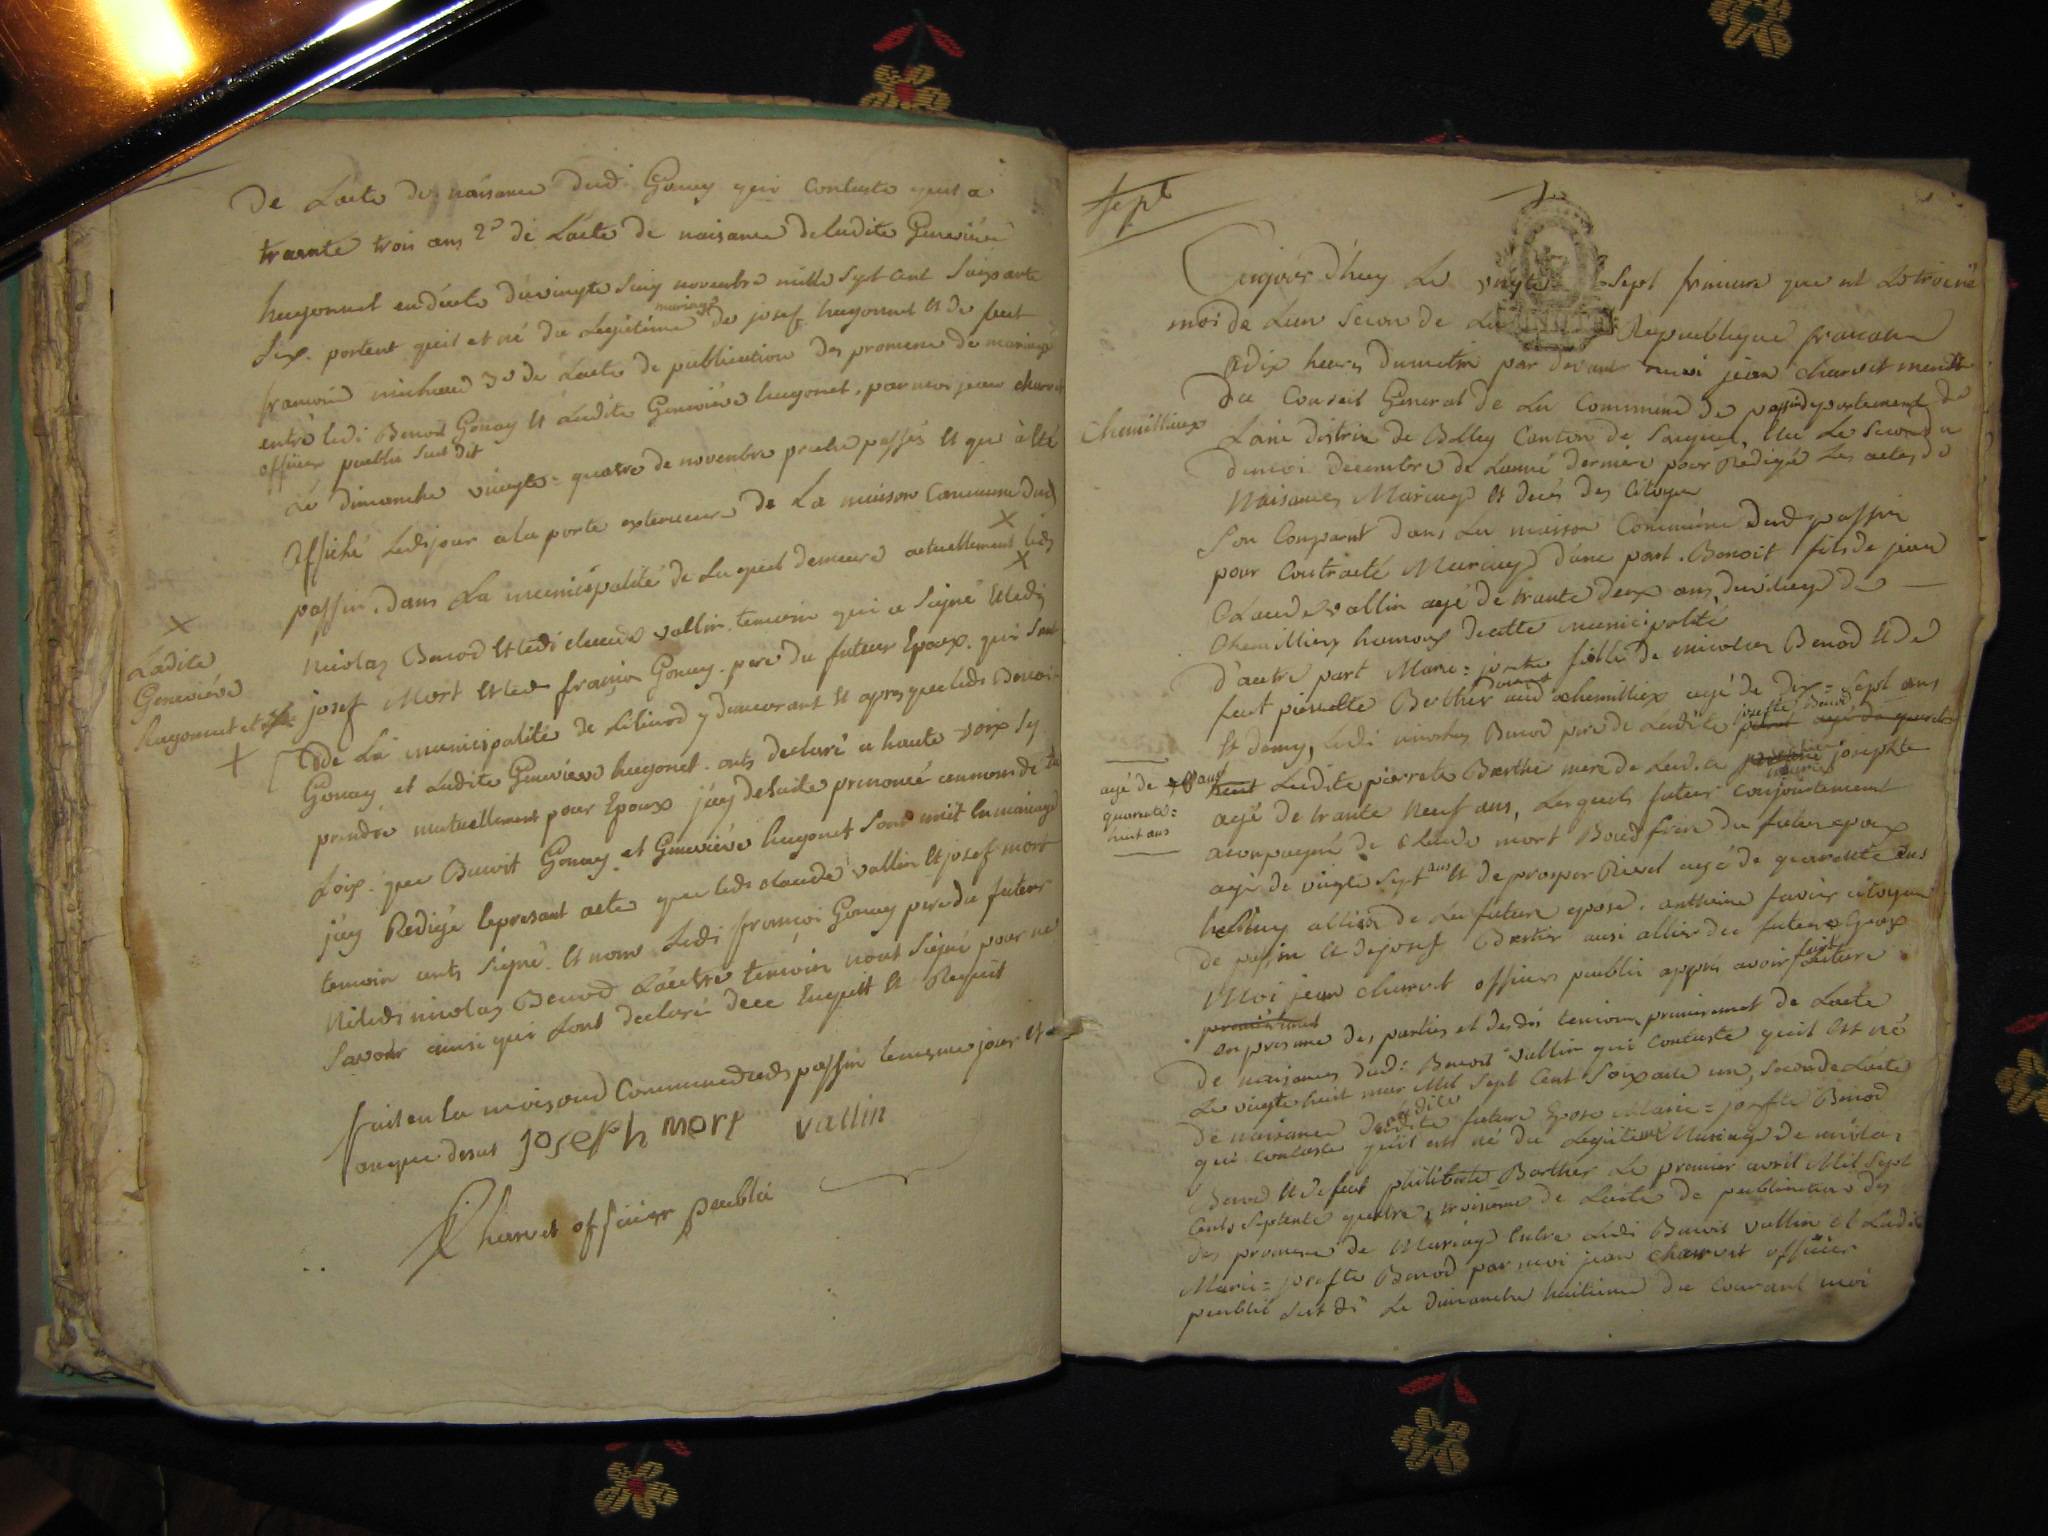 De L'acte de naisance dud. Gonay qui Contaste quil a
trante trois ans 2o de L'acte de naisance deladite Geneviève
hugonnet endate du vingte sinq novembre mille sept cent soixante
six. portent quil et né du Legitime mariage de josef hugonnet et de feut
francoise michaud 3o de L'acte de publication des promese de mariage
entre ledi Benoit Gonay et Ladite Geneviève hugonet, par moi jean charvet
officier publit sus dit
Le dimanche vingte = quatre de novembre proche passés et qui à été
affiché Ledijour a la porte exterieure de La maison Commune dud
passin. dans La municipalité de La quel demeure actuellement leds
nicolas Benod et ledi claude vallin temoin qui a signé et ledi
Ladite
Geneviève
hugonnet et
josef Mort et led françois Gonay. pere du futeur Epoux. qui sont
De La municipalité de Lilinod y demeurant et apres que leds Benoi
Gonay et Ladite Geneviève hugonet. onts declaré a haute voix sy
prendre mutuellement pour Epoux j'ay desuite prononcé aunom de la
Loix. que Benoit Gonay et Geneviève hugonet sont unit en mariage
j'ay Redigé le presant acte que leds claude vallin et josef mort
temoin onts signé. et nom Ledi francoi Gonay pere du futeur
Niledi nicolas Benod L'autre temoin nont signé pour ne
savoir ainsi quis L'ont declaré dece Enquit et Requit
fait en la maisond Commune duds passin lemesme jour et
an que desus joseph mort vallin
Charvet officier publit
Sept
Aujour d'huy Le vingte Sept frimere que est Le troisié
mois de L'an Second de La Republique francaise
a dix heurs dumatin par devant moi jean charvet membre
du Conseil General de La Commune de passin departement de
Chemillieux
L'ain distric de Belley Canton de Songieu, élu Le Second
dumoi decembre de L'anné derniere pour Redigé Les actes de
Naisances Mariages et decés des Citoyen
Son Comparut dans La maison Commune dud passin
pour Contracté Mariage d'une part. Benoit fils de jean
Claude vallin agé de trante deux ans, du vilage de
Chemillieu hamaux decette municipalité
D'autre part Marie = josefte fille de nicolas Benod et de
feut pierrette Berthier aud chemillieux agé de dix = sept ans
et demy, Ledi nicolas Benod pere de Ladite josefte Benod
agé de
quarente =
huit ans
Ladite pierrete Berthier mere de Lad.te marie josephte
agé de trante neuf ans, Lesquels futeur Conjointement
acompagné de Claude mort Beaufrere du futeur epoux
agé de vingte sept ans et de prosper Rivet agé de quarente ans
allier de La future epose. anthoine favier citoyen
de passin et de josef Bertier ausi allier du futeur Epoux
Moi jean charvet officier publit apprés avoir fait Lecture
en presance des parties et desdis temoin, premierement de L'acte
de naisance dud: Benoit vallin qui Contaste quil est né
Le vingte huit mars Mil sept Cent soixante un, second de L'acte
De naisance de ladite future Epose Marie = josefte Benod
qui Contaste quil est né du Legitime Mariage de nicolas
Benod et de feut philiberte Berthier Le premier avril Mil sept
Cents septente quatre, troisieme de L'acte de publication des
des promese de Mariage Entre Ledi Benoit vallin et Ladite
Marie = josefte Benod par moi jean charvet officier
publit sus di Le dimanche huitieme du Courant moi